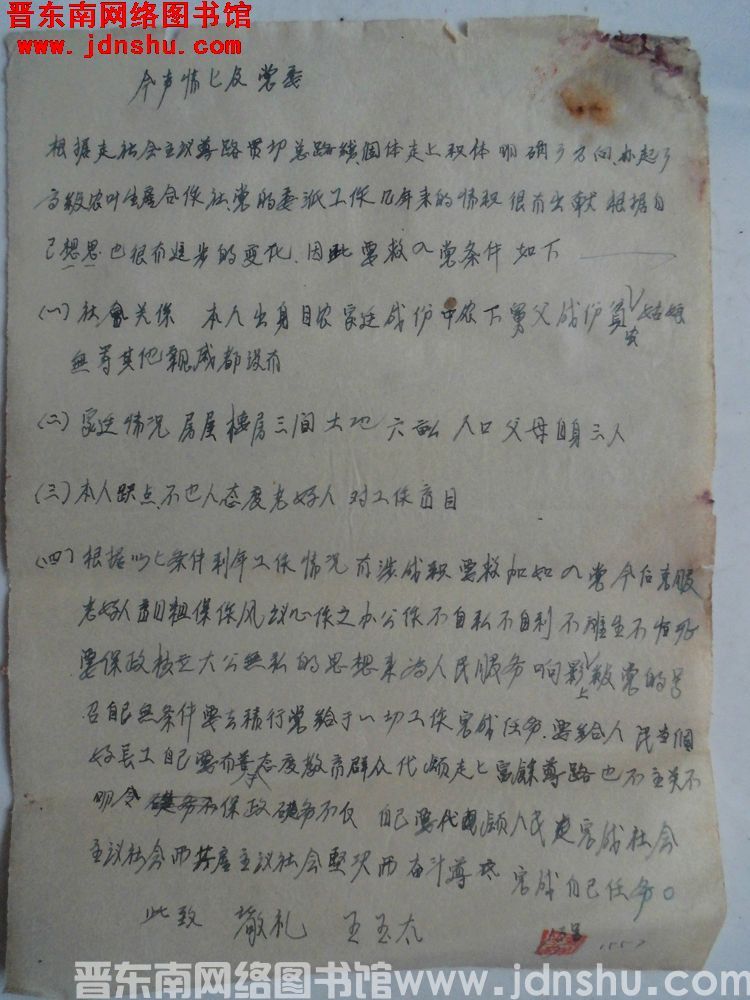 晋东南网络图书馆
www.jdnshu.com
今声情上及党委
根据走社会主议导路贯切总路线個体走上积体明确了方向,办起了
高级农叶生產合作社,党的委派工作几年来的情积很有出献根据自
己想思也很有进步的变化.因此要救入党条件如下
(一)社會关係 本人出身自农家廷成份中农下舅父成份貧农姑娘
無等其他親戚都没有
(二)家廷情况房屋楼房三间土地六畝人口父母自身三人
(三)本人缺点,不也人态度老好人对工作盲目
(四)根据以上条件利年工作情况有涉成积要救加如入党今后克服
老好人盲目粗保作风以心作之办公作不自私不自利不
要保政核立大公無私的思想来為人民服务响影上级党的号
召自己無条件要去積行党給于一切工作完成任务.要給人民当個
好長工自己要有善态度教育群众代領走上富余導路也不
明令 保政 不仅 自己要代領人民走完成社会
主议社会而共產主议社会堅决而奋斗導 完成自己任务。
此致 敬礼 王玉太
晋东南网络图书馆 www.jdnshu.com